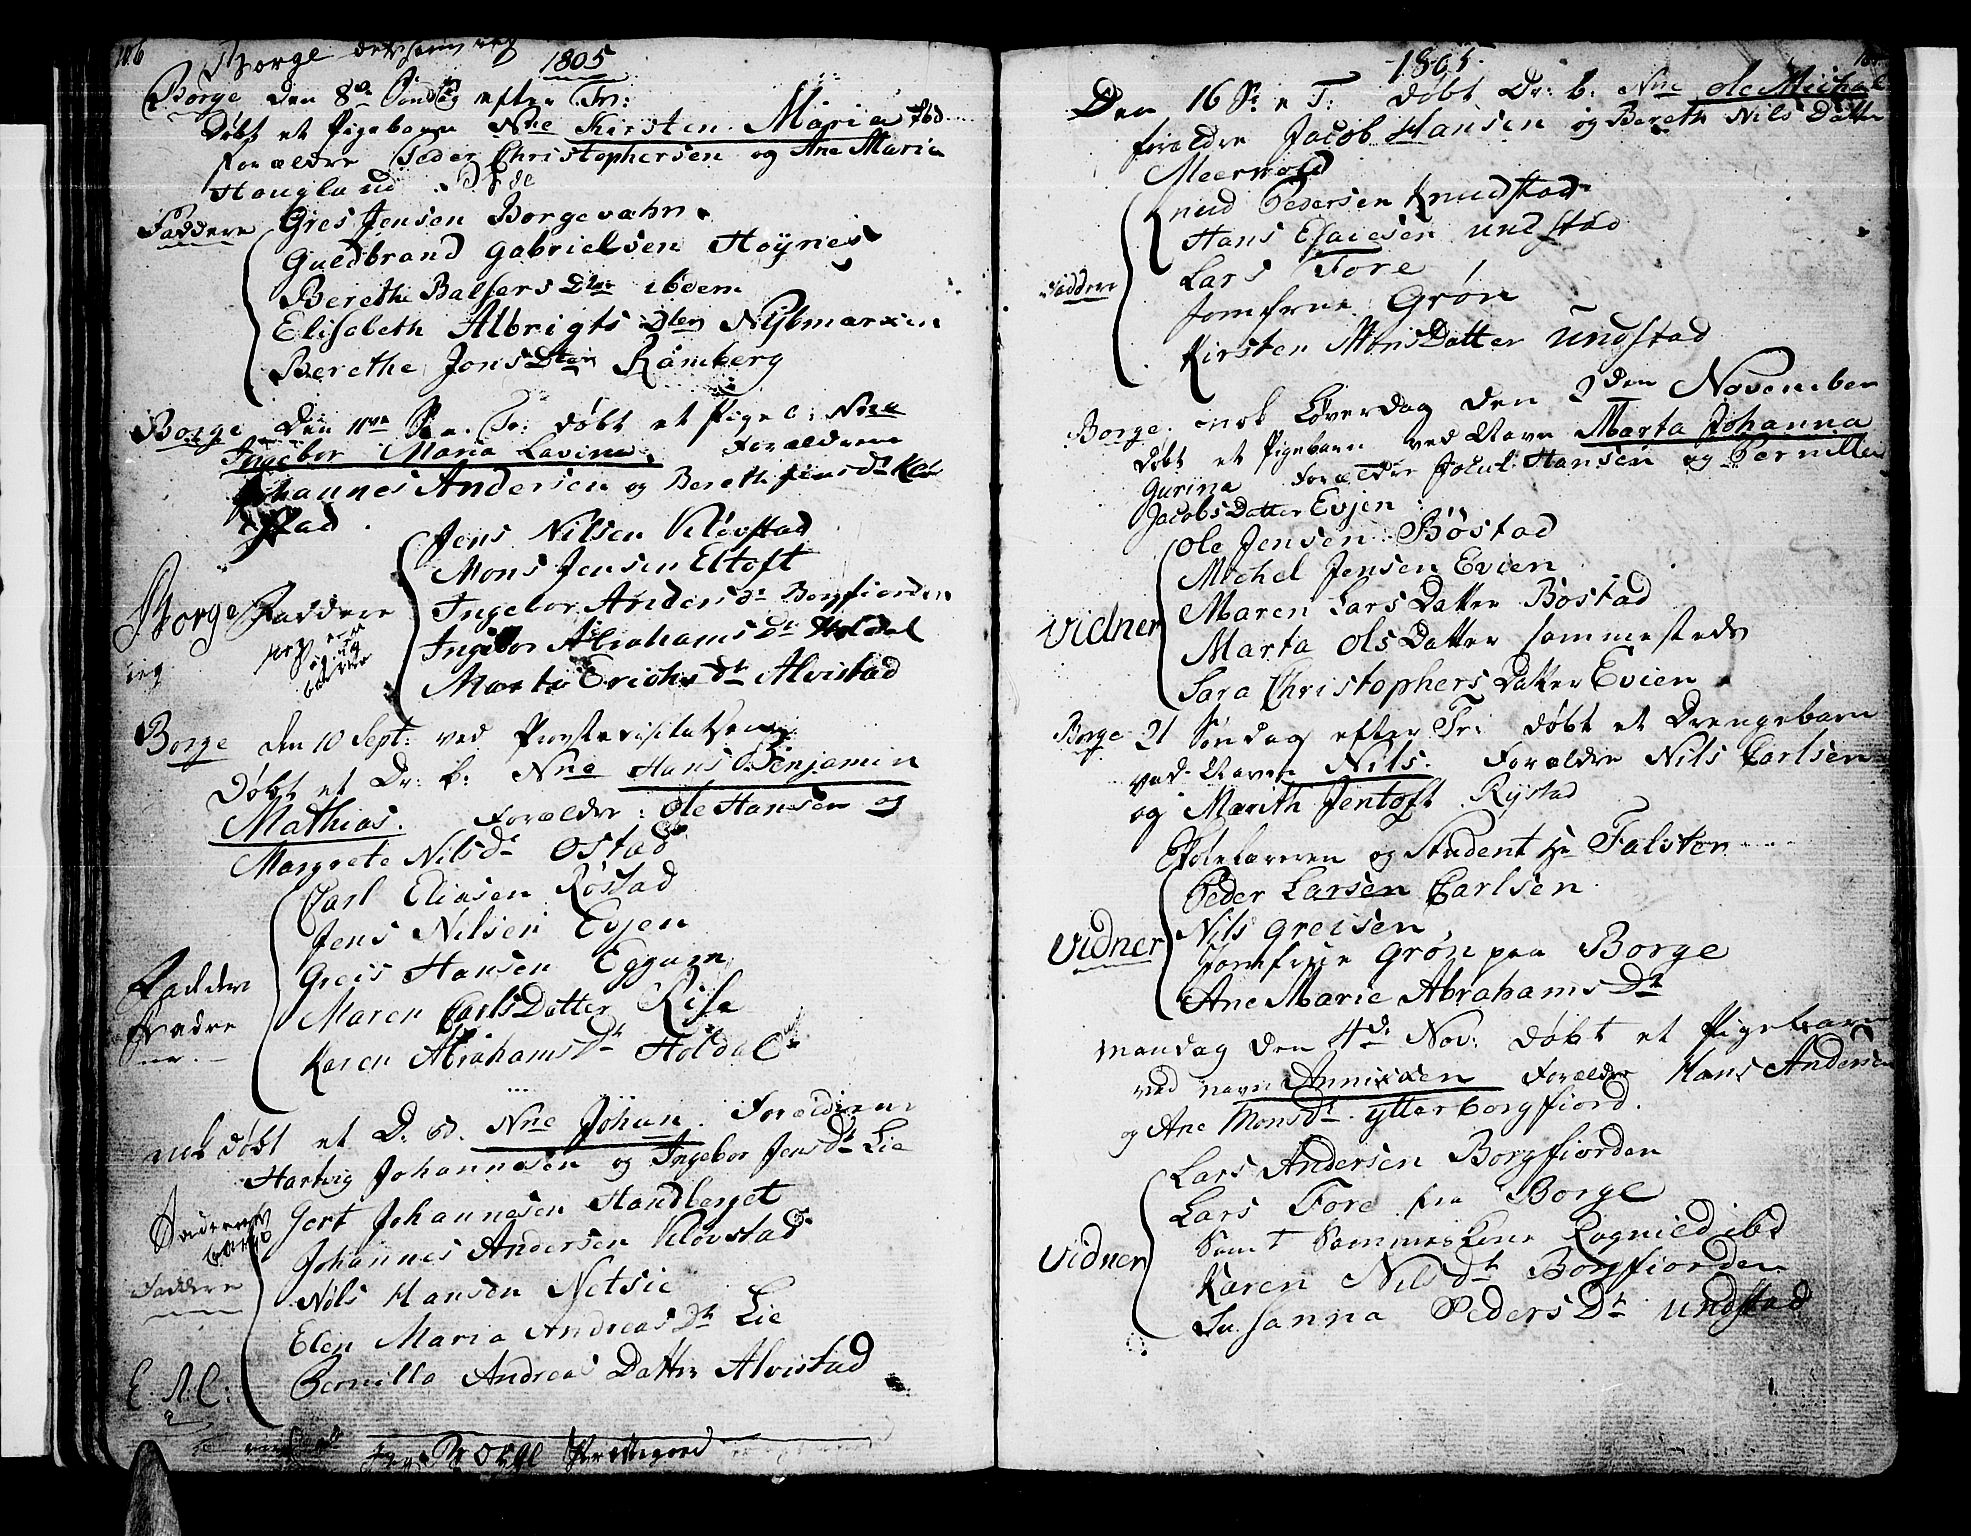 106
Borge
1805
Borge den 8de Sondag efter Tr:
Døbt et Pigebarn Nne Kirsten Maria
Forældre Peder Christophersen og Ane Maria
Hougland
Faddere Gres Jensen Borgevahn
Guldbrand Gabrielsen Höynes
Berethe Balsersdter ibdem
Elisabeth Albrigts Dter
Berethe Jons Dter Ramberg
Borge den 11te S. e. Tr: døbt et Pige b: Nne
Ingebor Maria Lavina. Forældrene
Johannes Andersen og Bereth Jensdr Klöv
stad.
Jens Nilsen Klövstad
Mons Jensen Eltoft
Borge Faddere Ingebor Andersdr Borgfiorden
Ingebor Abrahamsdr Holdal
Marta Erichsdr Alvistad
Borge den 10 Sept: ved Provstevisitatsen
Døbt et Dr: b: Nne Hans Benjamin
Mathias. Forældre: Ole Hansen og
Margrete Nilsdr Ostad
Carl Eliasen Röstad
Jens Nilsen Evjen
Greis Hansen Eggum
Faddere Maren Carls Datter Risa
Karen Abrahamsdr Holdal
nok døbt et D. b. Nne Johan. Forældrene
Hartvig Johannesen og Ingebor Jensdr Lie
Gert Johannesen Handberget
Johannes Andersen Klövstad
Faddere Nils Hansen
Elen Maria Andreasdr Lie
Pernilla Andreas Datter Alvistad
Borge Præstegaard
1805
Den 16 S. e T: døbt Dr: b. Nne Ole Michal
forældre Jacob Hansen og Bereth Nils Datter
Meervold
Knud Pedersen Knudstad
Hans Esaiesen Undstad
Faddere Lars Fore
Jomfrue Grön
Kirsten MonsDatter Undstad
Borge. nok Løverdag den 2den November
Døbt et Pigebarn ved Navn Marta Johanna
Gurina Forældre Hansen og Pernille
JacobsDatter Evjen
Ole Jensen Böstad
Michel Jensen Evien
Vidner Maren Lars Datter Böstad
Marta Ols Datter sammesteds
Sara Christophers Datter Evien
Borge 21 Söndag efter Tri døbt et Drengebarn
ved Navn Nils. Forældre Nils Carlsen
og Marith Jentoft Rystad
Skolelæreren og Student Hr Falster
Peder Larsen Carlsen
Vidner Nils Greisen
Jomfrue Grön paa Borge
Ane Marie Abrahams Dr
Mandag den 4de Nov: døbt et Pigebarn
ved navn Forældre Hans Andersen
og Ane Monsdr ytterborgfiord.
Lars Andersen Borgfiorden
Lars Fore fra Borge
Vidner Samt Ragnild ibd
Karen Nilsdr Borgfiorden
Susanna Peders Dr Undstad